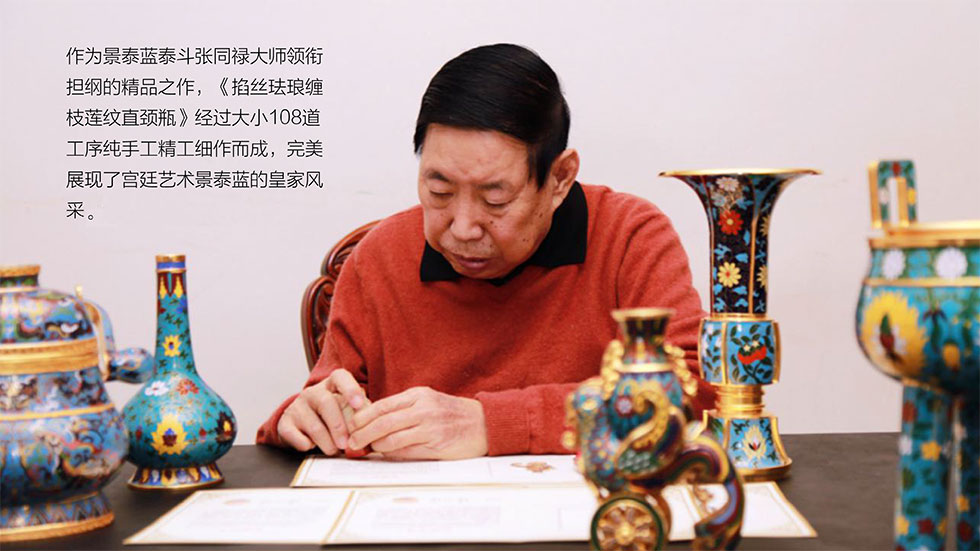 作为景泰蓝泰斗张同禄大师领衔
担纲的精品之作，《掐丝珐琅缠
枝莲纹直颈瓶》经过大小108道
工序纯手工精工细作而成，完美
展现了宫廷艺术景泰蓝的皇家风
采。